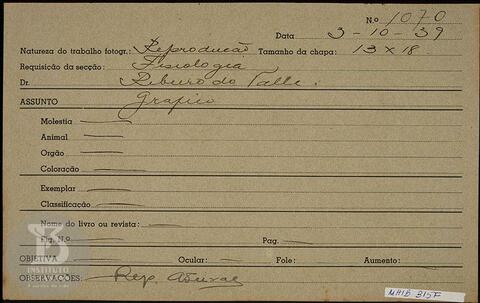 N.o 1070
Data 3-10-39
Natureza do trabalho fotogr.: Reproducão Tamanho da chapa: 13 x 18
Requisição da secção: Fisiologia
Dr. Ribeiro do Valle.
ASSUNTO Grafico
Molestia
Animal
Orgão
Coloração
Exemplar
Classificação
Nome do livro ou revista:
Fig. N.o Pag.
OBJETIVA Ocular: Fole: Aumento:
OBSERVAÇÕES: Rep.
INSTITUTO
MHIB 315F